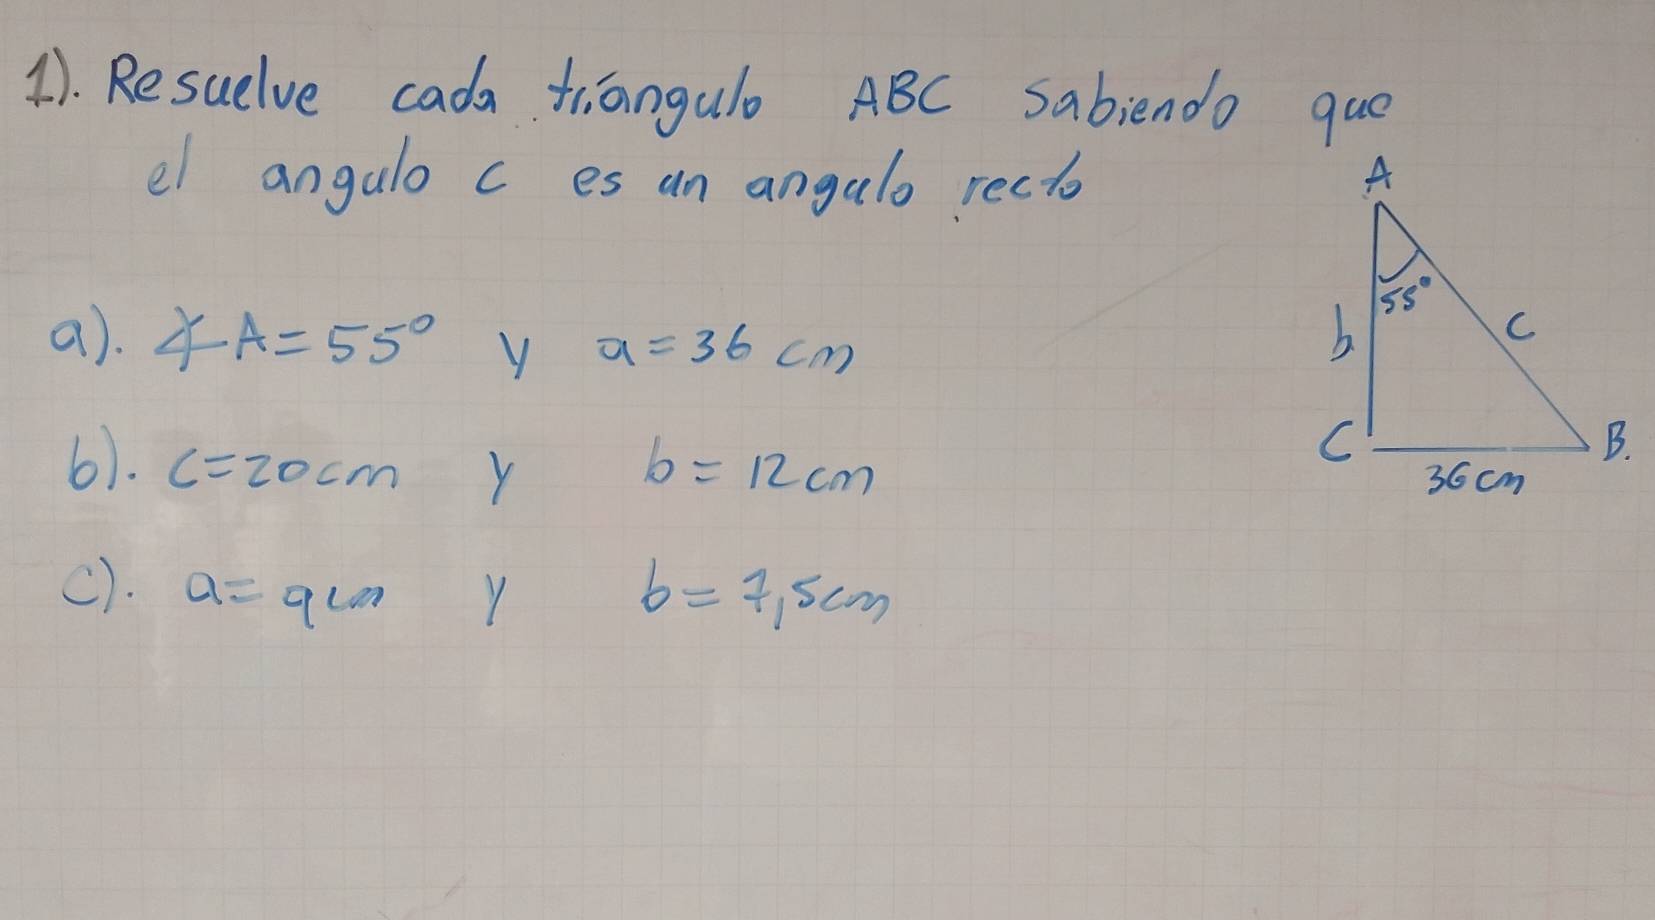 1). Resuelve cada triangulo ABC sabiendo que
el angulo c es un angulo recto
a). ∢A = 55° y a = 36 cm
b). c = 20cm y b = 12cm
c). a = 9cm y b = 7,5cm
A
55°
b
c
C
B.
36cm